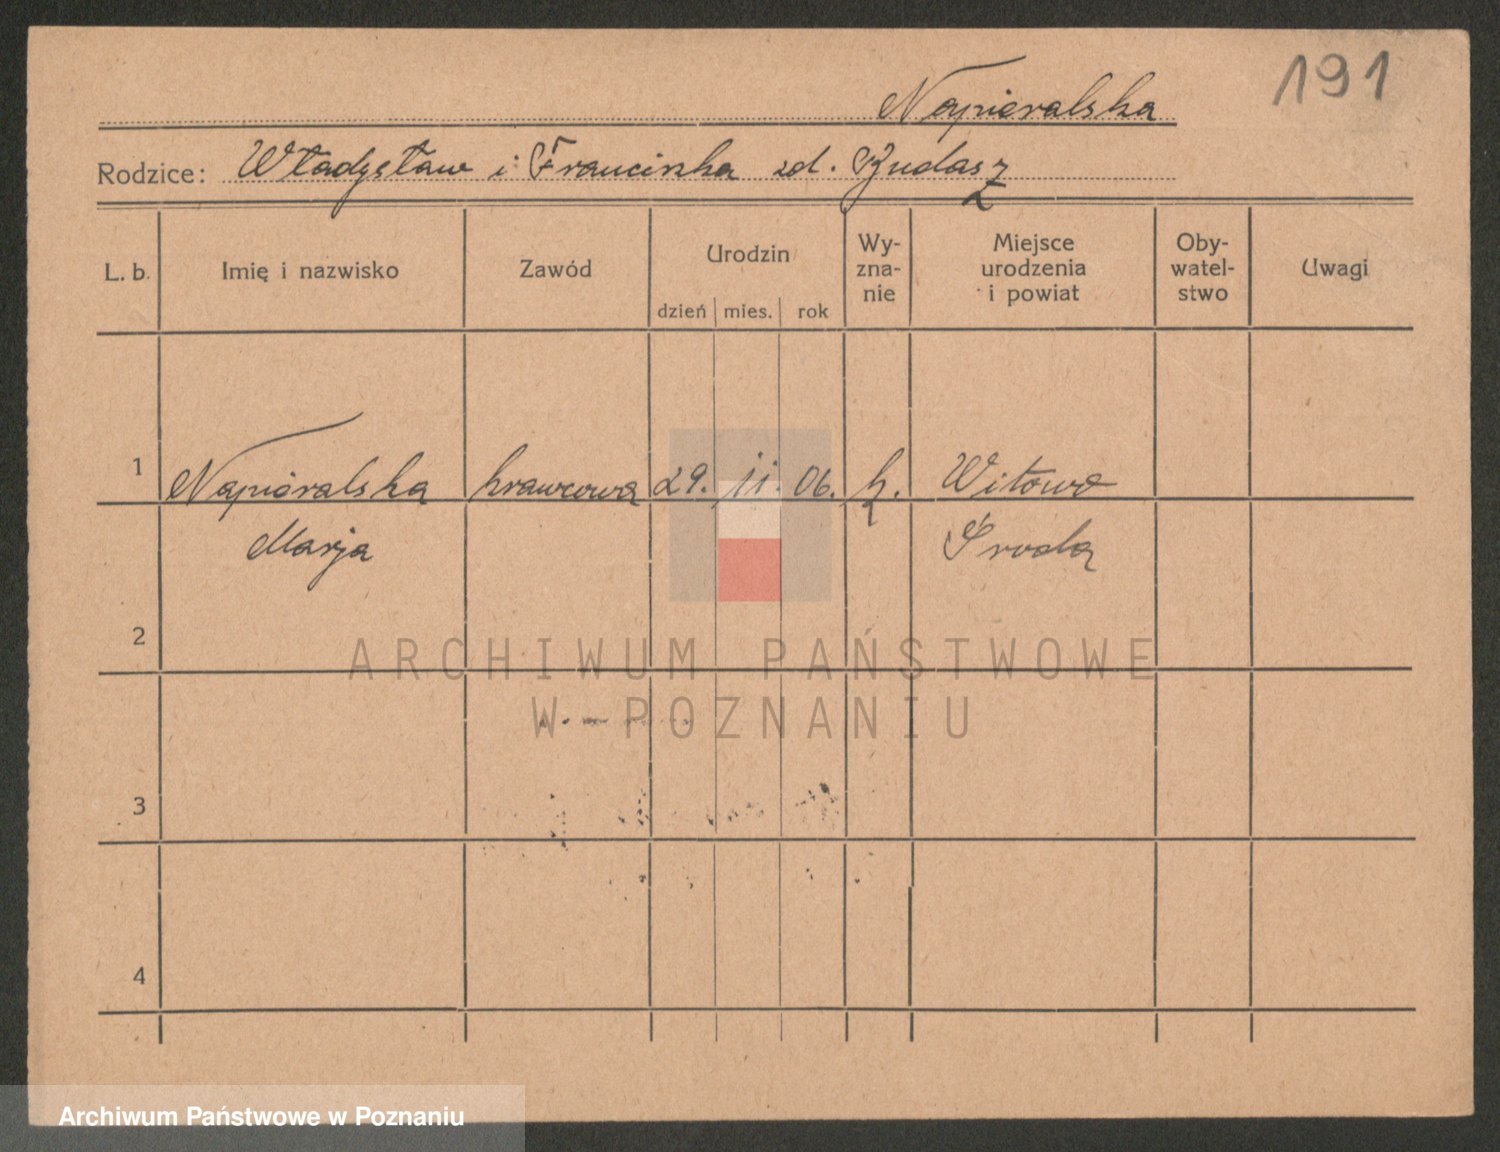 191
Napieralska
Rodzice: Władysław i Franciszka zd. Budasz
L. b. Imię i nazwisko Zawód Urodzin dzień mies. rok Wy-zna-nie Miejsce urodzenia i powiat Oby-watel-stwo Uwagi
1 Napieralska krawcowa 29. 11. 06. k. Witowo
Marja Środa
2
ARCHIWUM PAŃSTWOWE
W POZNANIU
3
4
Archiwum Państwowe w Poznaniu